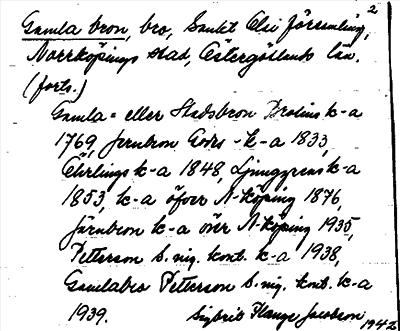 2
Gamla bron, bro, Sankt Olai församling,
Norrköpings stad, Östergötlands län.
(forts.)
Gamla= eller Stadsbron Brolins k-a
1769, Jernbron Görs - k-a 1833,
Ehrlings k-a 1848, Ljunggrens k-a
1853, k-a öfver N-köping 1876,
Järnbron k-a över N-köping 1935,
Petterson S. nig. kont. k-a 1938,
Gamlabro Petterson S. nig. kont. k-a
1939. Sigbrit Plange Jacobson
1942